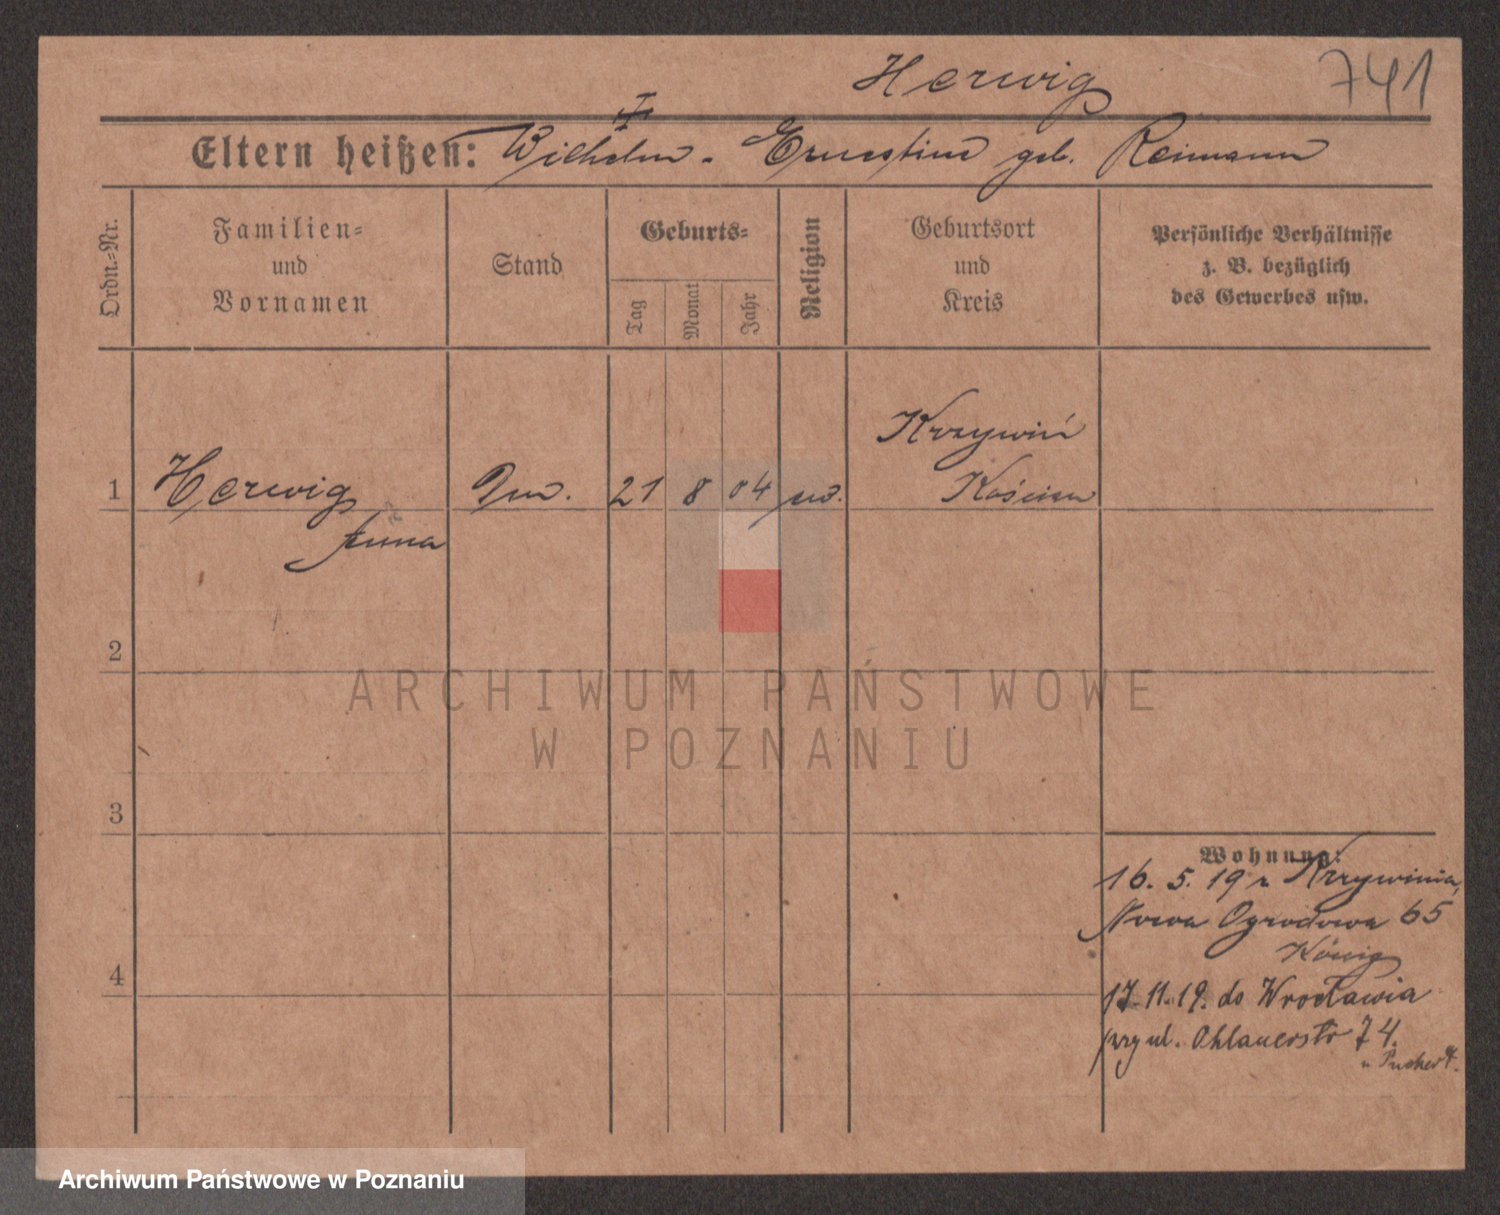 Herwig 741
Eltern heißen: Wilhelm - Ernestine geb. Reimann
Ordn.-Nr.
Familien-
und
Vornamen
Stand
Geburts-
Tag
Monat
Jahr
Religion
Geburtsort
und
Kreis
Persönliche Verhältnisse
z. B. bezüglich
des Gewerbes usw.
Krzywiń
1 Herwig 21 8 04 ew. Kościan
Anna
2
3
4
Wohnung:
16. 5. 19 z Krzywinia,
Nowa Ogrodowa 65
König
17.11.19. do Wrocławia
przy ul. Ohlauerstr 74.
ARCHIWUM PAŃSTWOWE
W POZNANIU
Archiwum Państwowe w Poznaniu